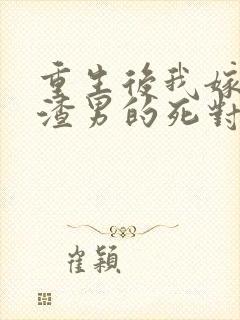 重生後我嫁
渣男的死對
崔穎